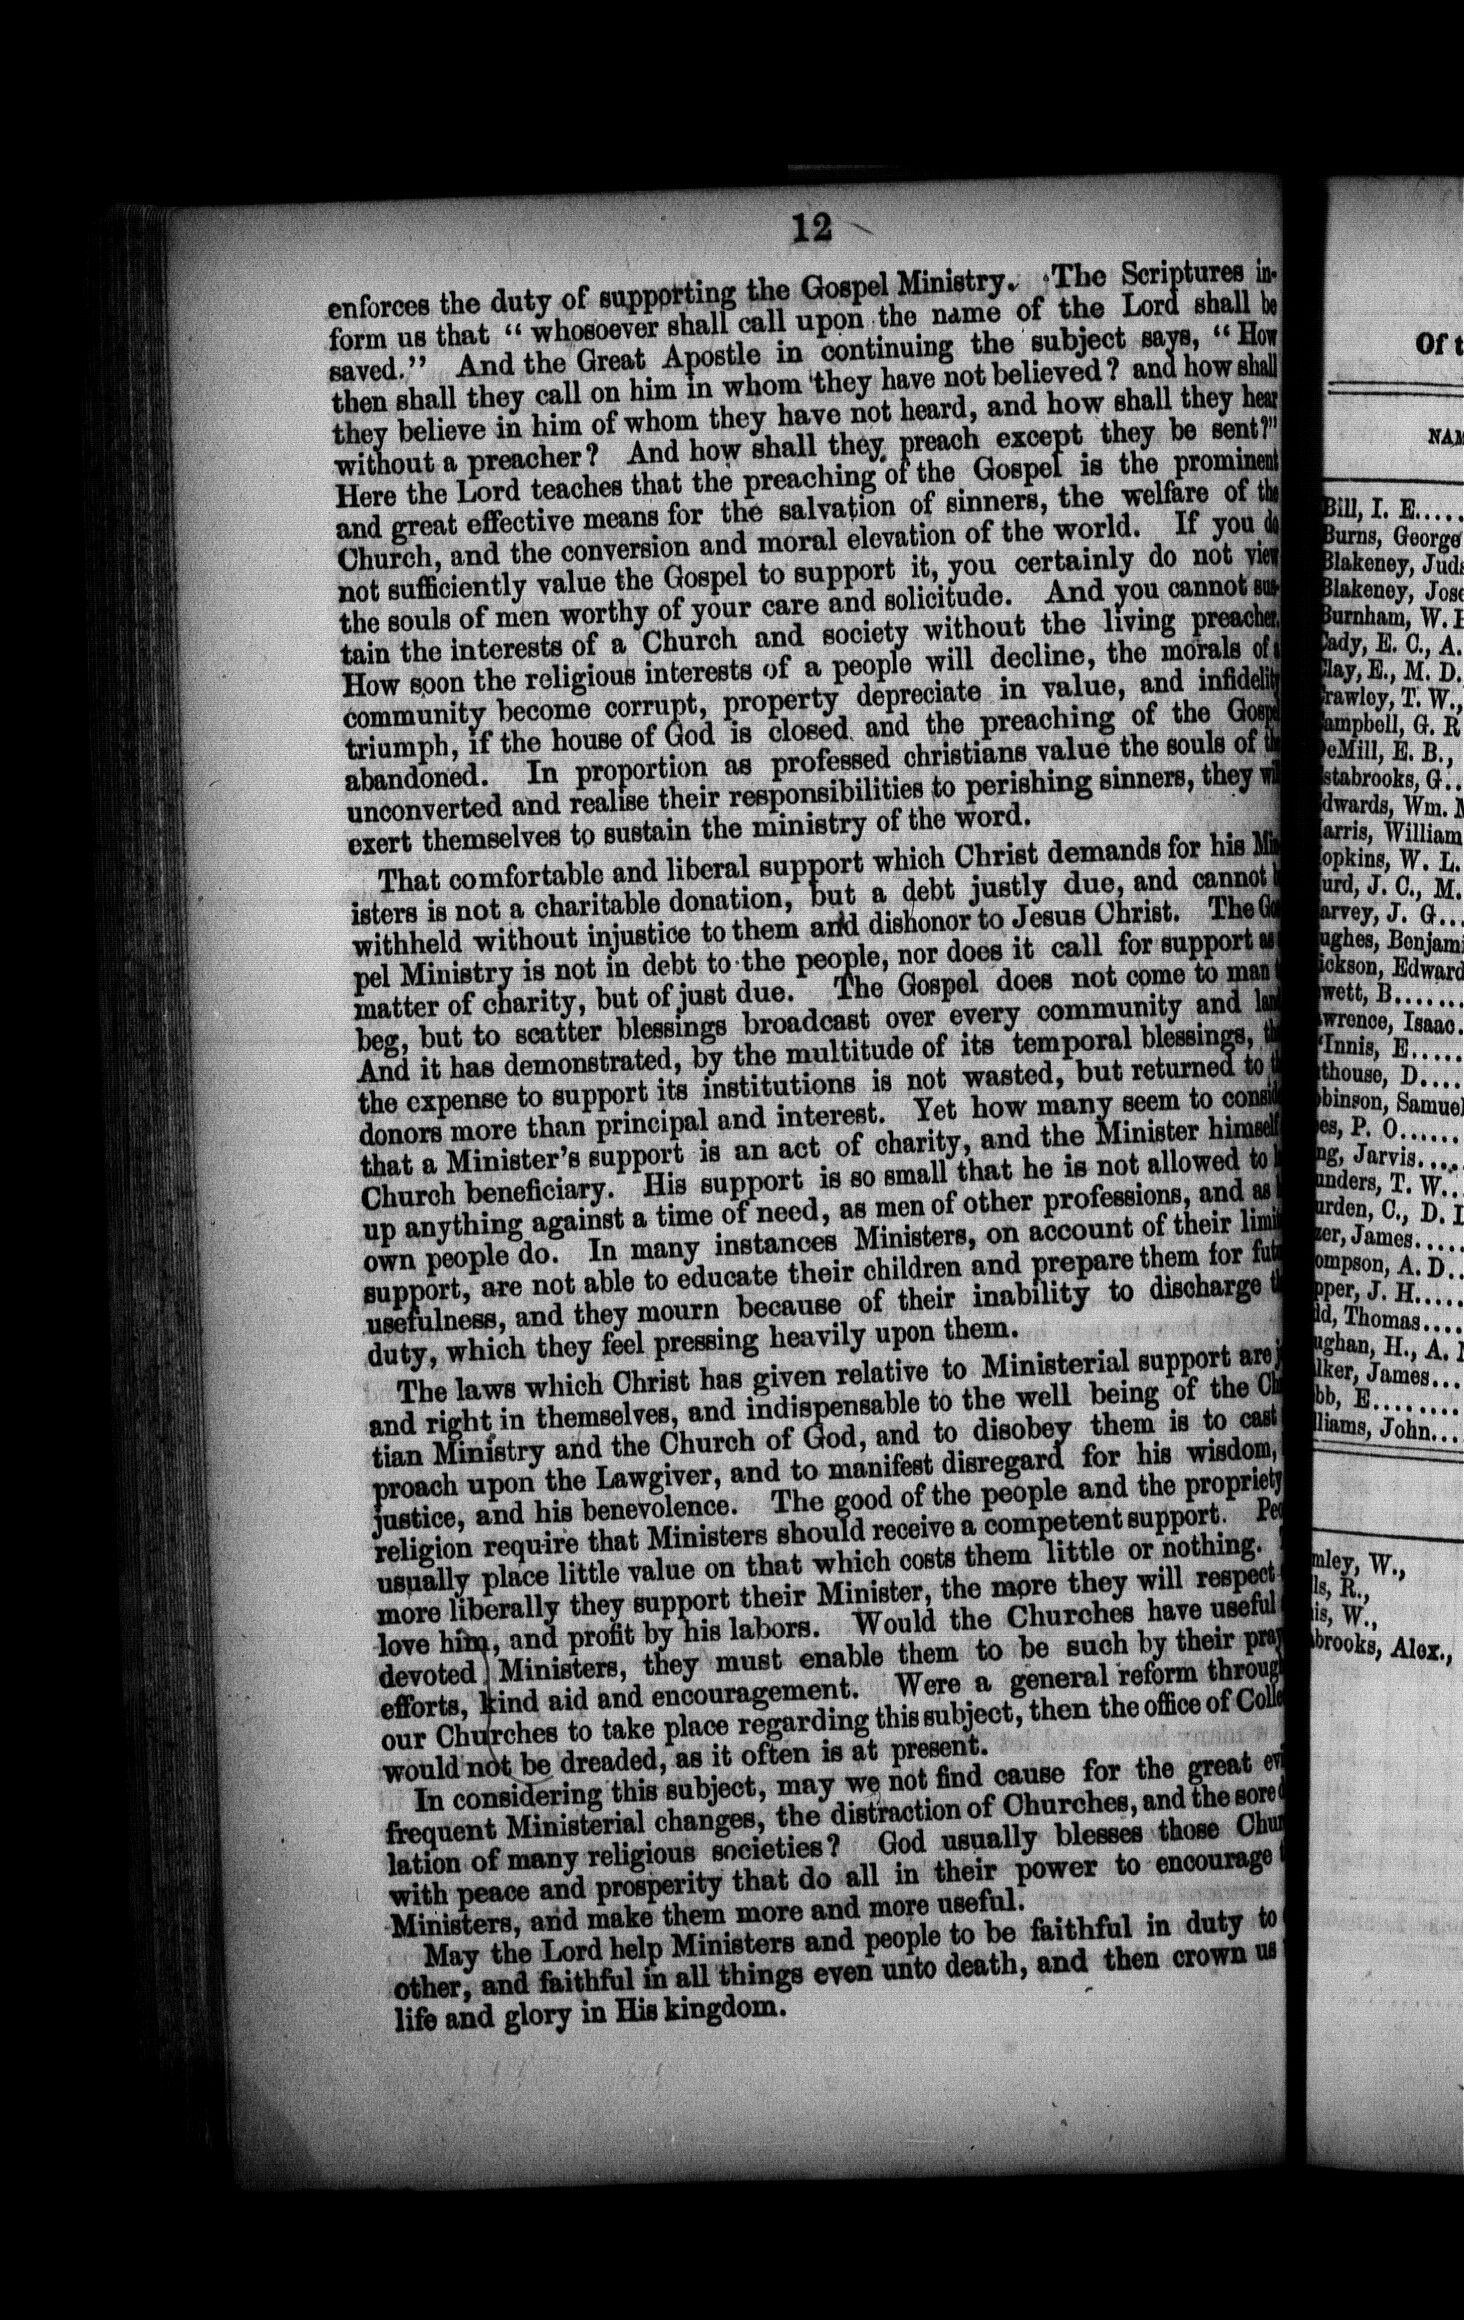 12
enforces the duty of supporting the Gospel Ministry. The Scriptures in-
form us that "whosoever shall call upon the name of the Lord shall be
saved." And the Great Apostle in continuing the subject says, "How
then shall they call on him in whom they have not believed? and how shall
they believe in him of whom they have not heard, and how shall they hear
without a preacher? And how shall they preach except they be sent?"
Here the Lord teaches that the preaching of the Gospel is the prominent
and great effective means for the salvation of sinners, the welfare of the
Church, and the conversion and moral elevation of the world. If you do
not sufficiently value the Gospel to support it, you certainly do not view
the souls of men worthy of your care and solicitude. And you cannot sus-
tain the interests of a Church and society without the living preacher.
How soon the religious interests of a people will decline, the morals of a
community become corrupt, property depreciate in value, and infidelity
triumph, if the house of God is closed and the preaching of the Gospel
abandoned. In proportion as professed christians value the souls of the
unconverted and realise their responsibilities to perishing sinners, they wil
exert themselves to sustain the ministry of the word.
That comfortable and liberal support which Christ demands for his Min
isters is not a charitable donation, but a debt justly due, and cannot b
withheld without injustice to them and dishonor to Jesus Christ. The Gos
pel Ministry is not in debt to the people, nor does it call for support as
matter of charity, but of just due. The Gospel does not come to man t
beg, but to scatter blessings broadcast over every community and land
And it has demonstrated, by the multitude of its temporal blessings, th
the expense to support its institutions is not wasted, but returned to th
donors more than principal and interest. Yet how many seem to consid
that a Minister's support is an act of charity, and the Minister himself
Church beneficiary. His support is so small that he is not allowed to l
up anything against a time of need, as men of other professions, and as
own people do. In many instances Ministers, on account of their limit
support, are not able to educate their children and prepare them for futu
usefulness, and they mourn because of their inability to discharge th
duty, which they feel pressing heavily upon them.
The laws which Christ has given relative to Ministerial support are j
and right in themselves, and indispensable to the well being of the Ch
tian Ministry and the Church of God, and to disobey them is to cast
proach upon the Lawgiver, and to manifest disregard for his wisdom,
justice, and his benevolence. The good of the people and the propriety
religion require that Ministers should receive a competent support. Peo
usually place little value on that which costs them little or nothing.
more liberally they support their Minister, the more they will respect
love him, and profit by his labors. Would the Churches have useful
devoted Ministers, they must enable them to be such by their pray
efforts, kind aid and encouragement. Were a general reform through
our Churches to take place regarding this subject, then the office of Colle
would not be dreaded, as it often is at present.
In considering this subject, may we not find cause for the great evi
frequent Ministerial changes, the distraction of Churches, and the sore d
lation of many religious societies? God usually blesses those Chur
with peace and prosperity that do all in their power to encourage t
Ministers, and make them more and more useful.
May the Lord help Ministers and people to be faithful in duty to
other, and faithful in all things even unto death, and then crown us
life and glory in His kingdom.
Of t
NAM
Bill, I. E.....
Burns, George
Blakeney, Juds
Blakeney, Jose
Burnham, W. H
Cady, E. C., A.
Clay, E., M. D.
rawley, T. W.,
ampbell, G. R
eMill, E. B.,
stabrooks, G..
dwards, Wm. M
arris, William
opkins, W. L.
urd, J. C., M.
arvey, J. G...
ughes, Benjami
ickson, Edward
wett, B.......
wrence, Isaac.
'Innis, E.....
thouse, D....
binson, Samuel
es, P. O......
ng, Jarvis....
unders, T. W..
urden, C., D. D
zer, James.....
ompson, A. D..
pper, J. H.....
dd, Thomas....
ughan, H., A. M
lker, James...
bb, E........
lliams, John...
mley, W.,
ls, R.,
is, W.,
brooks, Alex.,